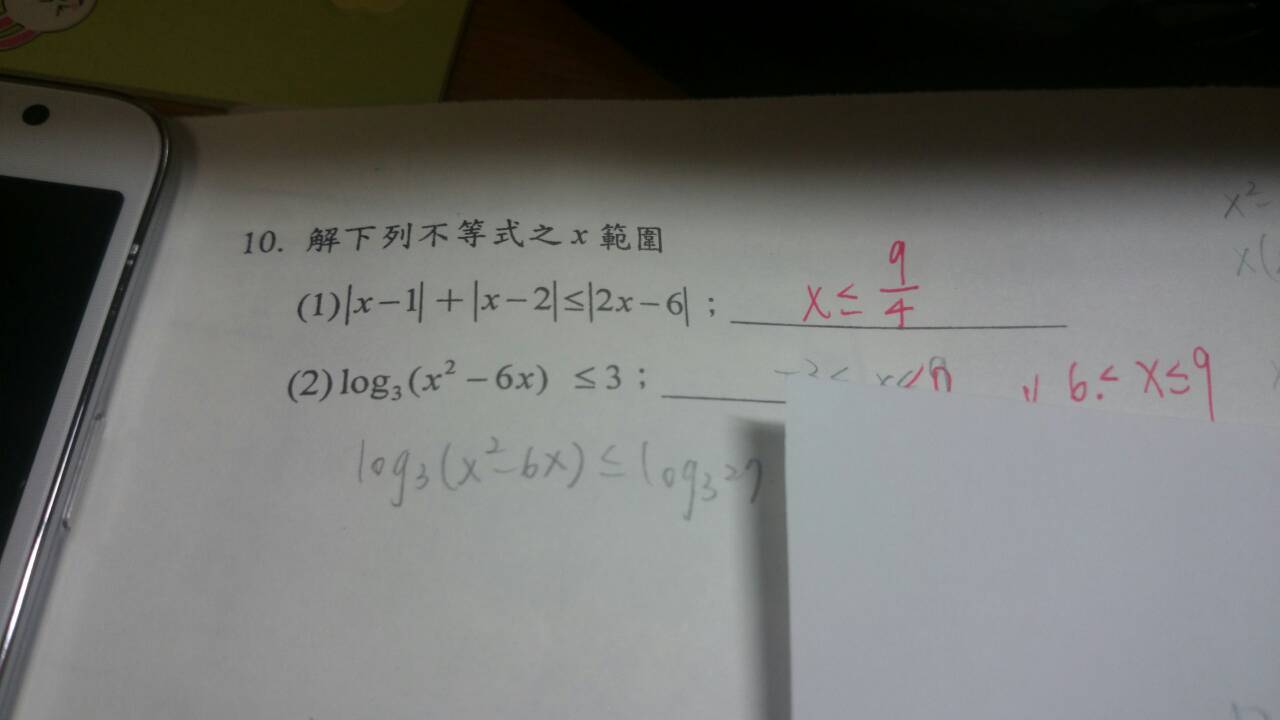 10. 解下列不等式之 x 範圍
(1)|x-1|+|x-2|≤|2x-6|；x ≤ 9/4
(2)log₃(x²-6x) ≤3； 6 < x ≤ 9
log₃(x²-6x) ≤ log₃27